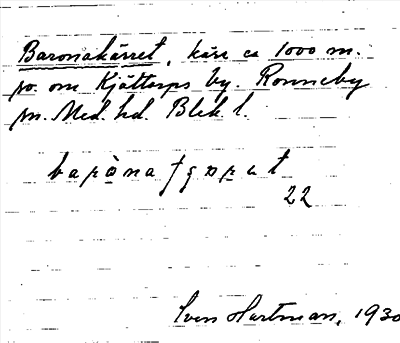 Baronakärret, kärr ca 1000 m.
so. om Kjättorps by. Ronneby
sn. Med. hd. Blek. l.
22
Sven Hartman, 1930